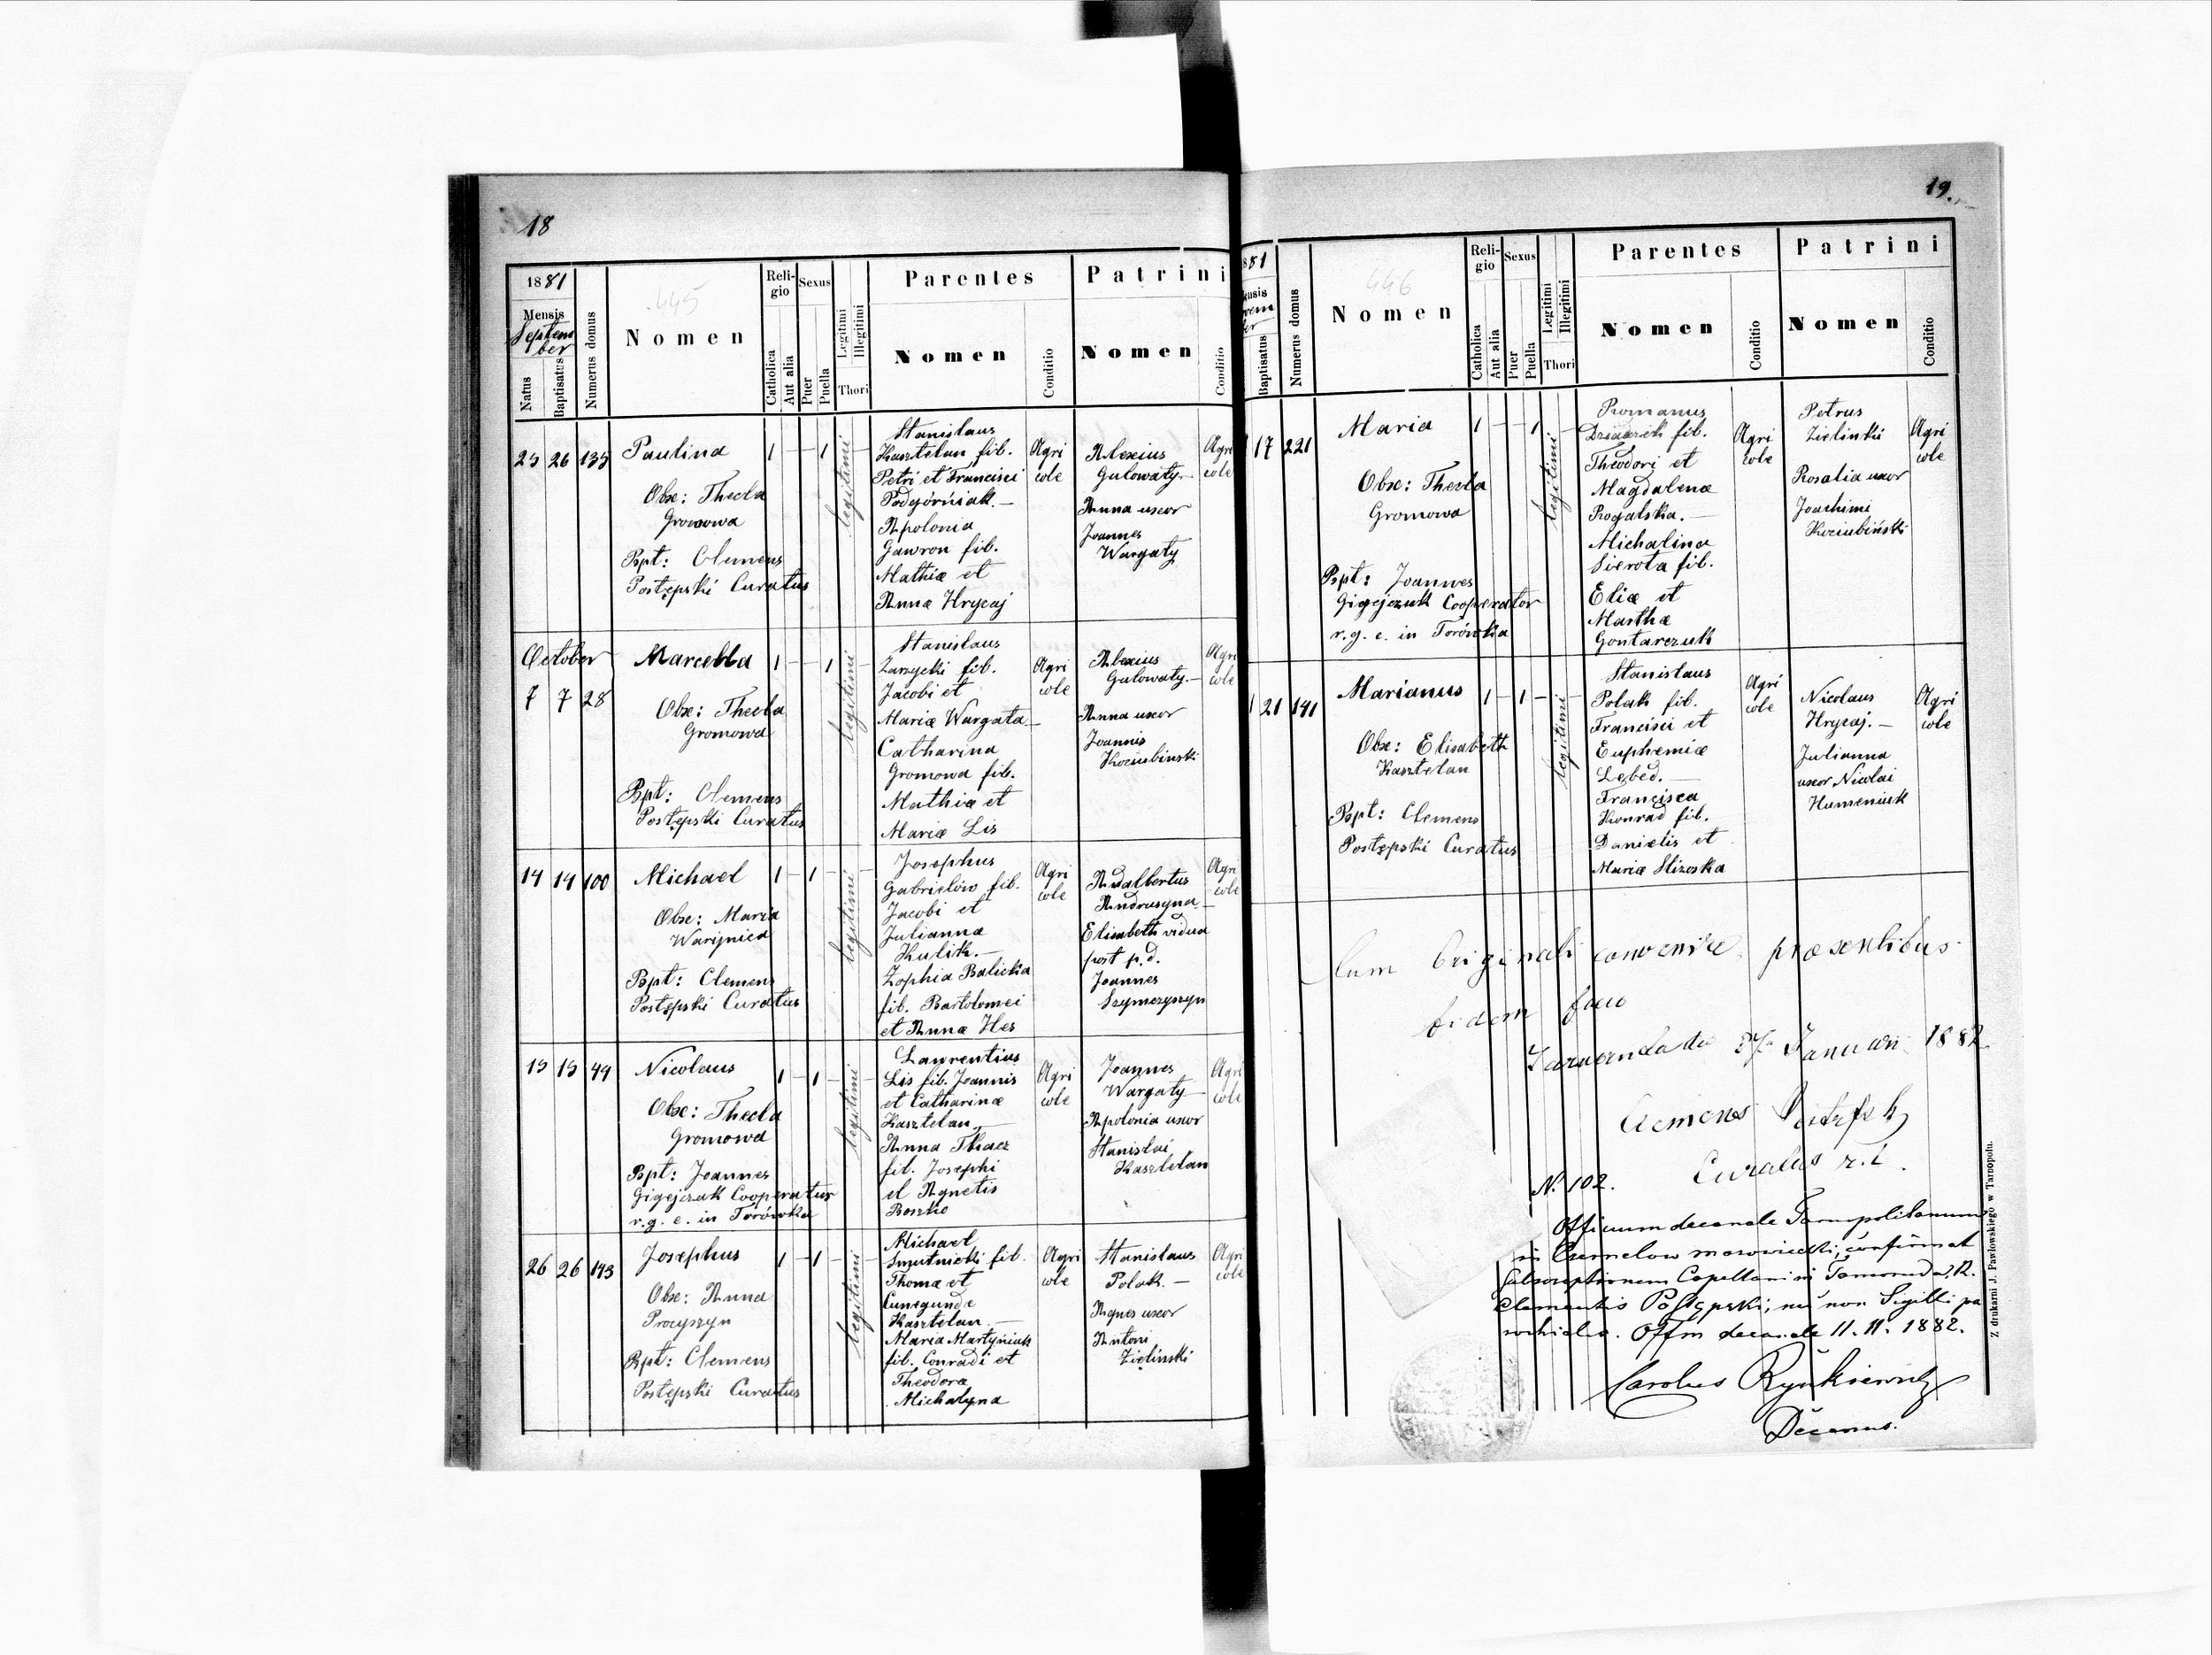 18
1881
Mensis
Septem
ber
Natus
Baptisatus
Numerus domus
445
Nomen
Reli-
gio
Catholica
Aut alia
Sexus
Puer
Puella
Legitimi
Illegitimi
Thori
Parentes
Nomen
Conditio
Patrini
Nomen
Conditio
25 26 135
Paulina
1 — 1
Obse: Thecla
Gromowa
Bpt: Clemens
Postępski Curatus
legitimi
Stanislaus
Kasztelan fil.
Petri et Francisci
Podgórniak. —
Apolonia
Gawron fil.
Mathiæ et
Annæ Hrycaj
Agri
colæ
Alexius
Gulowaty —
Anna uxor
Joannes
Wargaty
Agri
colæ
October
7 7 28
Marcella
1 — 1
Obse: Thecla
Gromowa
Bpt: Clemens
Postępski Curatus
legitimi
Stanislaus
Zarzycki fil.
Jacobi et
Mariæ Wargata —
Catharina
Gromowa fil.
Mathiæ et
Mariæ Lis
Agri
colæ
Alexius
Gulowaty. —
Anna uxor
Joannis
Kociubinski
Agri
colæ
14 14 100
Michael
1 — 1
Obse: Maria
Warijnica
Bpt: Clemens
Postępski Curatus
legitimi
Josephus
Gabrielów fil.
Jacobi et
Julianna
Kulik. —
Zophia Balicka
fil. Bartolomei
et Annæ Hes
Agri
colæ
Adalbertus
Andruszyna —
Elisabeth vidua
post p.d.
Joannes
Szymczyszyn
Agri
colæ
15 15 44
Nicolaus
1 — 1
Obse: Thecla
Gromowa
Bpt: Joannes
Gigejczuk Cooperator
r.g.c. in Torówka
legitimi
Laurentius
Lis fil. Joannis
et Catharinæ
Kasztelan —
Anna Tkacz
fil. Josephi
et Agnetis
Boszko
Agri
colæ
Joannes
Wargaty —
Apolonia uxor
Stanislai
Kasztelan
Agri
colæ
26 26 143
Josephus
1 — 1
Obse: Anna
Procyszyn
Bpt: Clemens
Postępski Curatus
legitimi
Michael
Smutnicki fil.
Thomæ et
Cunegundæ
Kasztelan —
Maria Martyniuk
fil. Conradi et
Theodoræ
Michalyna
Agri
colæ
Stanislaus
Polak. —
Agnes uxor
Antoni
Zielinski
Agri
colæ
19.
Baptisatus
Numerus domus
446
Nomen
Reli-
gio
Catholica
Aut alia
Sexus
Puer
Puella
Legitimi
Illegitimi
Thori
Parentes
Nomen
Conditio
Patrini
Nomen
Conditio
17 221
Maria
1 — 1
Obse: Thecla
Gromowa
Bpt: Joannes
Gigejczuk Cooperator
r.g.c. in Torówka
legitimi
Romanus
fil.
Theodori et
Magdalenæ
Rogalska. —
Michalina
Sierota fil.
Eliæ et
Marthæ
Gontarczuk
Agri
colæ
Petrus
Zielinski
Rosalia uxor
Joachimi
Kociubiński
Agri
colæ
21 141
Marianus
1 — 1
Obse: Elisabeth
Kasztelan
Bpt: Clemens
Postępski Curatus
legitimi
Stanislaus
Polak fil.
Francisci et
Euphemiæ
Lebed. —
Francisca
Konrad fil.
Danielis et
Mariæ
Agri
colæ
Nicolaus
Hrycaj. —
Julianna
uxor Nicolai
Humeniuk
Agri
colæ
Cum Originali convenire præsentibus
fidem facio
Januari 1882
Clemens
Curatus r.l.
N. 102.
Officium decanale Tarnopolitanum
in confirmat
subscriptionem Capellani in
Clementis Postępski, nec non Sigilli pa
rochialis. Offm decanale 11. 11. 1882.
Carolus
Decanus.
Z drukarni J. Pawłowskiego w Tarnopolu.